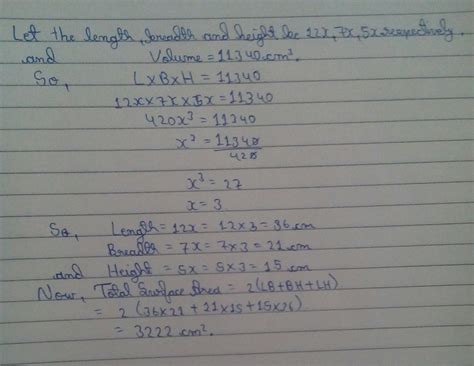 Let the length, breadth and height be 12x, 7x, 5x respectively.
and Volume = 11340 cm³.
So, L×B×H = 11340
12x×7x×5x = 11340
420x³ = 11340
x³ = 11340
420
x³ = 27
x = 3
So, Length = 12x = 12×3 = 36 cm
Breadth = 7x = 7×3 = 21 cm
and Height = 5x = 5×3 = 15 cm
Now, Total Surface Area = 2(LB+BH+LH)
= 2 (36×21 + 21×15 + 15×36)
= 3222 cm².